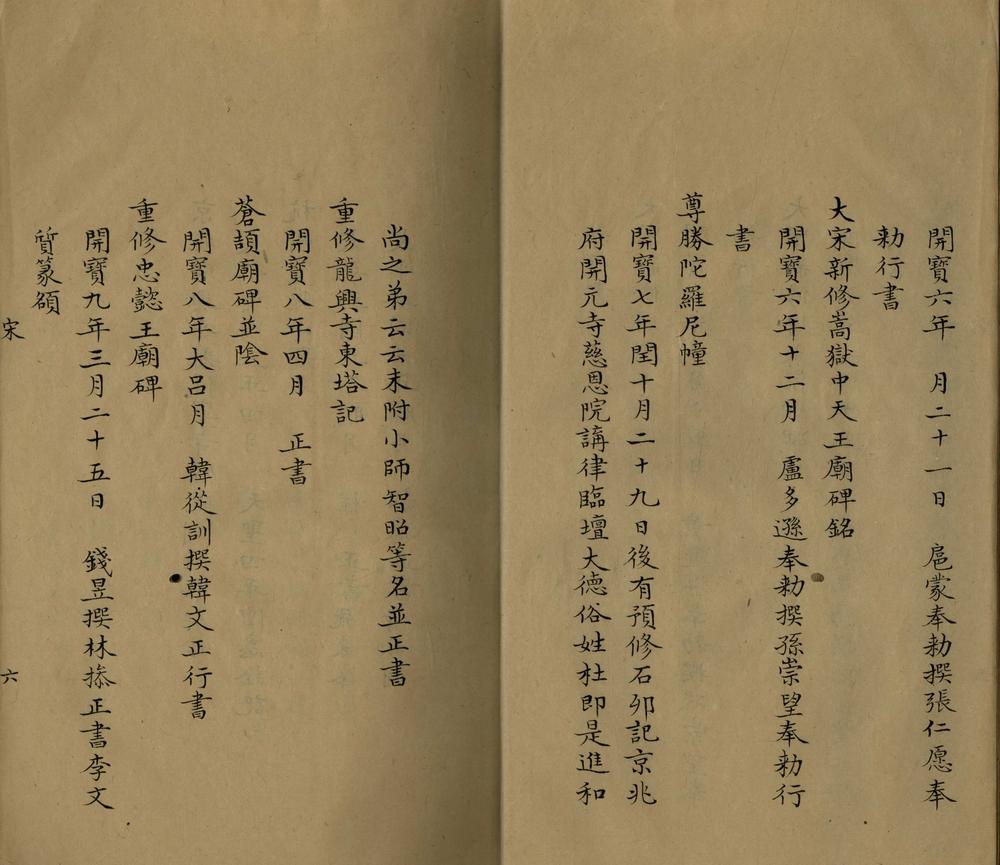 開寶六年　月二十一日　扈蒙奉勑撰張仁愿奉
勑行書
大宋新修嵩嶽中天王廟碑銘
開寶六年十二月　盧多遜奉勑撰孫崇望奉勑行
書
尊勝陀羅尼幢
開寶七年閏十月二十九日後有預修石夘記京兆
府開元寺慈恩院講律臨壇大德俗姓杜即是進和
尚之弟云云末附小師智昭等名並正書
重修龍興寺東塔記
開寶八年四月　正書
蒼頡廟碑並陰
開寶八年大呂月　韓從訓撰韓文正行書
重修忠懿王廟碑
開寶九年三月二十五日　錢昱撰林搽正書李文
質篆額
宋
六